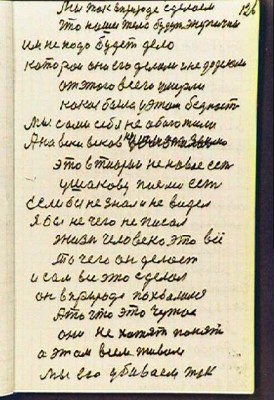 Мы ток вприроде сделоем
126
что наши тело будут энергии
им не надо будет дело
котороя они его делом и не додекали
от этого всего умерли
какая была у этом бедност
Мы сами себя не обоготили
А на веки веков
это в тиории не новае ест
ушакову поеми ест
Если бы не знали не видел
Я бы не чего не писал
жизн человека это всё
то чего он делоет
и сам все это сделал
он вприроде похвалился
А то что это чужоя
они не хотят понят
а этом всем живом
мы его убиваем ток